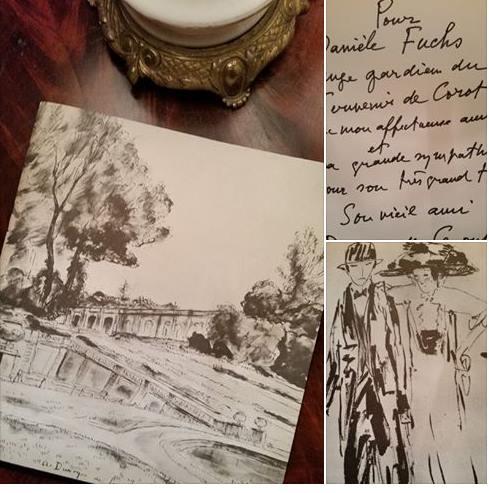 Pour
Danièle Fuchs
ange gardien du
souvenir de Corot
mon affectueuse
et
grande sympath
pour son très grand t
Son vieil ami